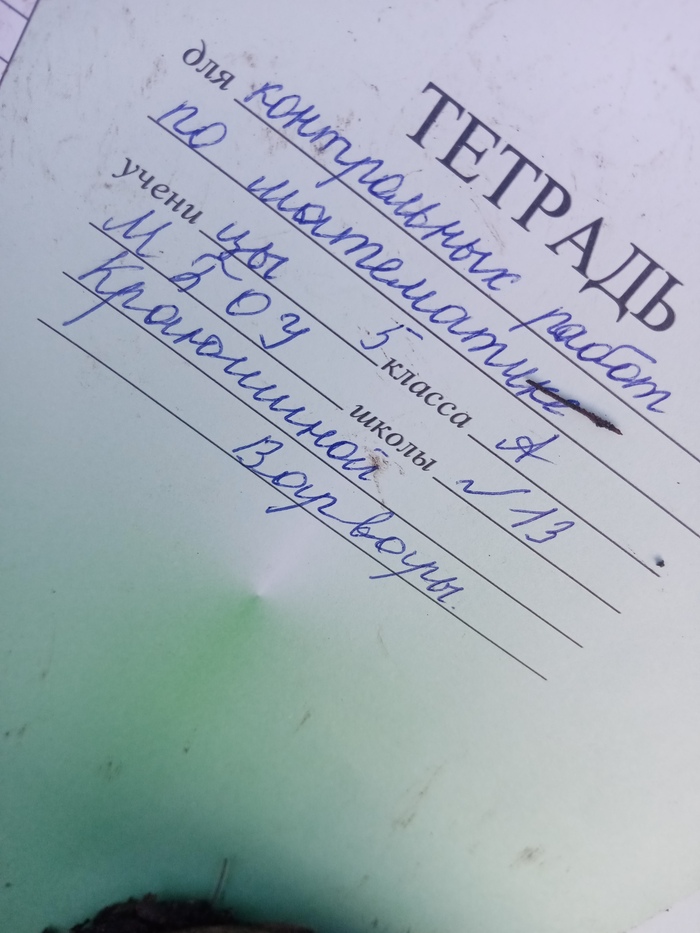 ТЕТРАДЬ
для контральных работ
по математике
учени цы 5 класса А
МБОУ школы №13
Краншиной
Варвары.